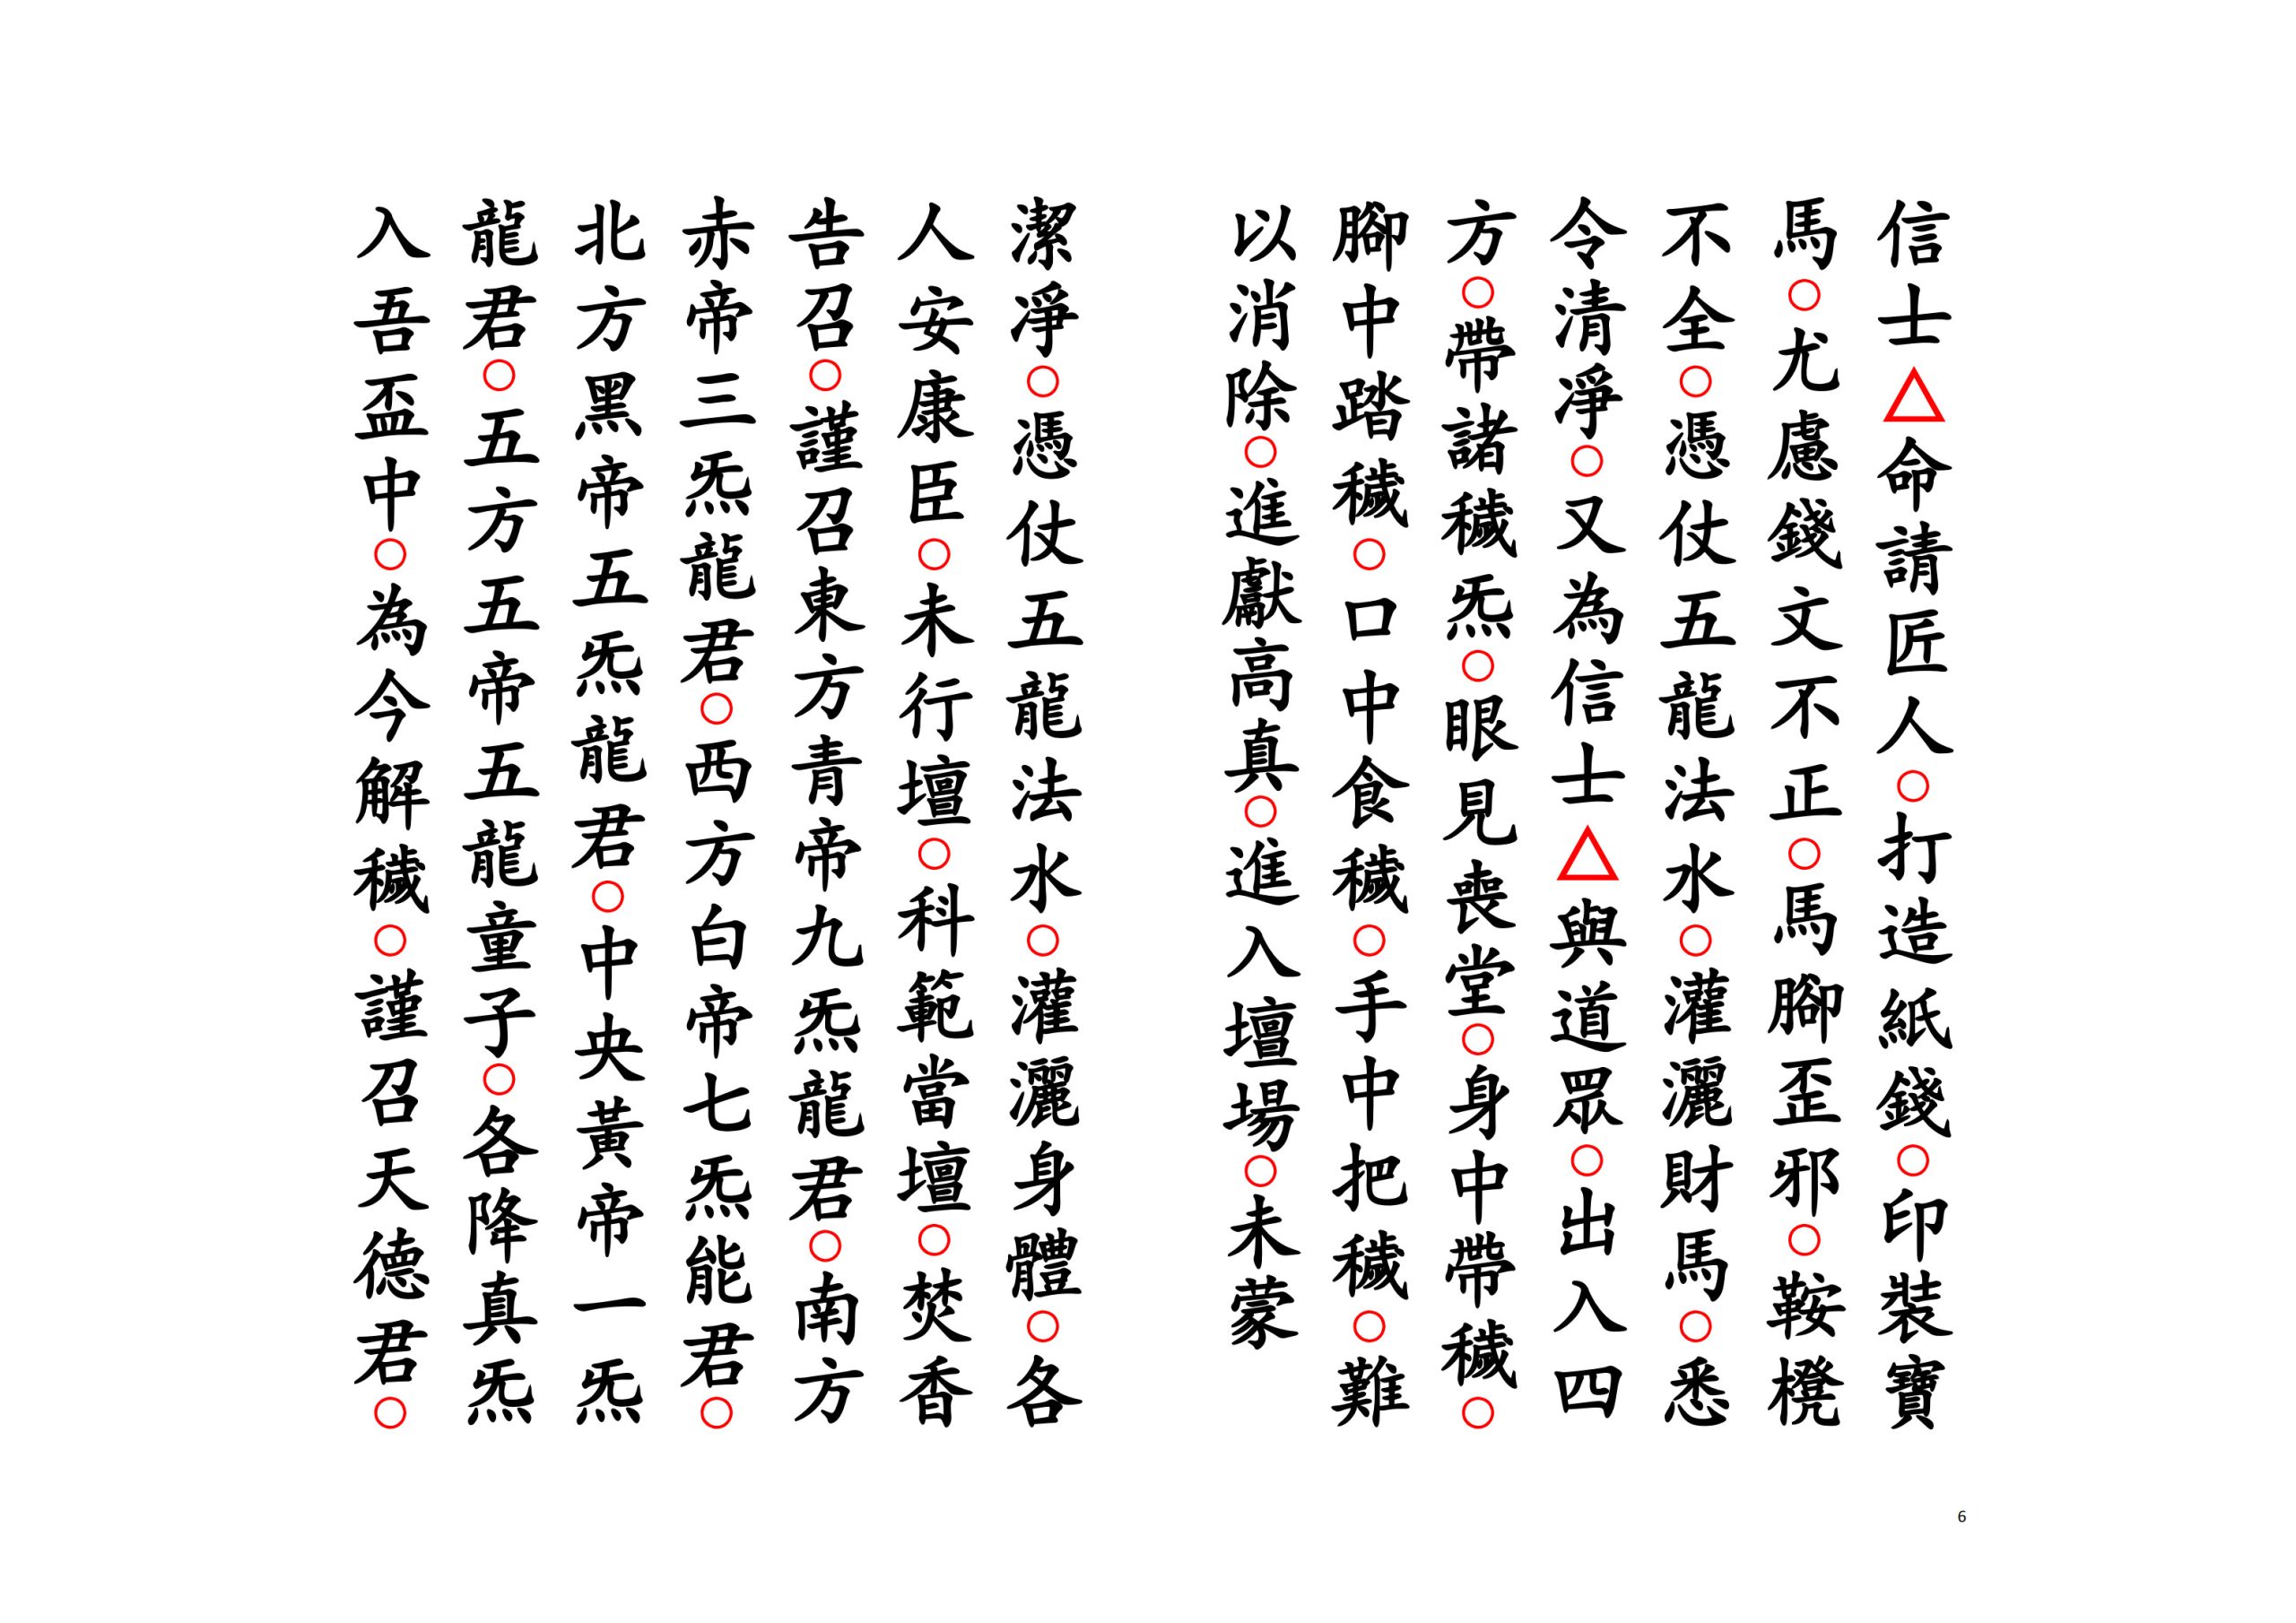 信士△命請匠人○打造紙錢○印裝寶
馬○尤慮錢文不正○馬腳歪邪○鞍櫈
不全○憑仗五龍法水○灌灑財馬○悉
令清淨○又為信士△與道眾○出入四
方○帶諸穢炁○眼見喪堂○身中帶穢○
腳中踏穢○口中食穢○手中把穢○難
以消除○進獻高真○進入壇場○未蒙
潔淨○憑仗五龍法水○灌灑身體○各
人安康臣○未行壇○科範當壇○焚香
告召○謹召東方青帝九炁龍君○南方
赤帝三炁龍君○西方白帝七炁能君○
北方黑帝五炁龍君○中央黃帝一炁
龍君○五方五帝五龍童子○各降真炁
入吾盃中○為今解穢○謹召天德君○
6